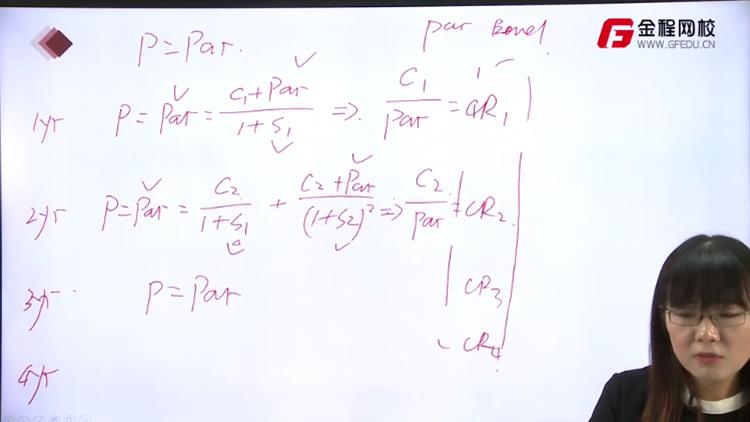 P=Par.
par Bond
金程网校
WWW.GFEDU.CN
1yr P=Par=(C₁+Par)/(1+S₁) ⇒ C₁/Par=CR₁
2yr P=Par=C₂/(1+S₁)+(C₂+Par)/(1+S₂)² ⇒ C₂/Par=CR₂
3yr P=Par CR₃
4yr CR₄